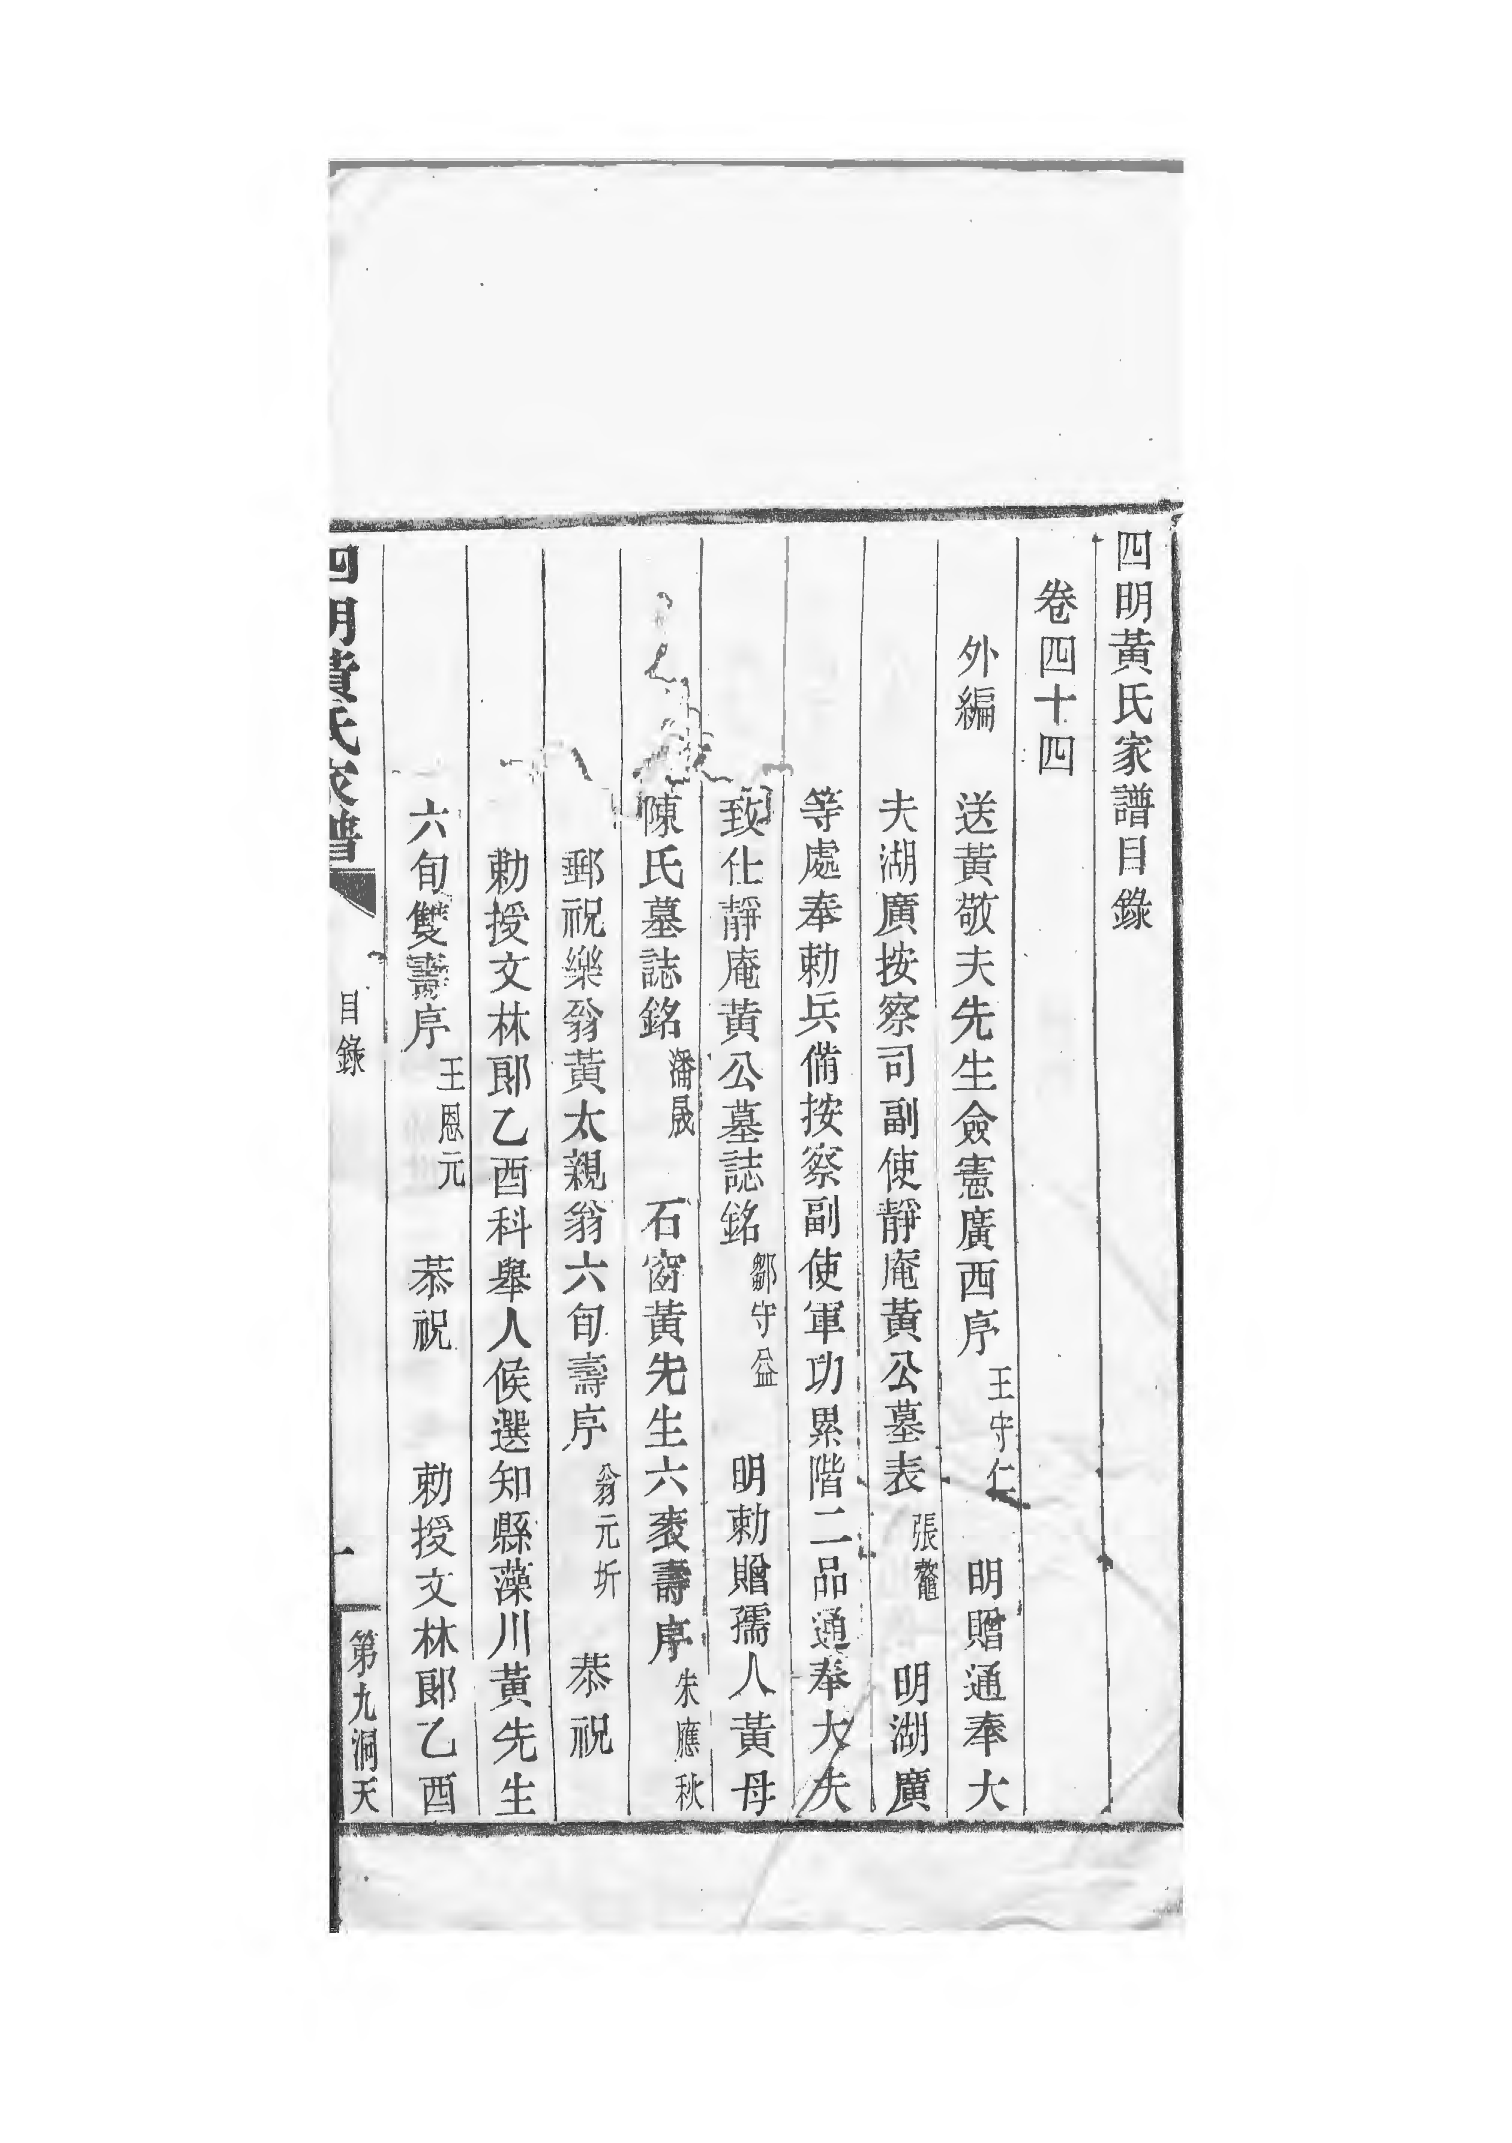 四明黃氏家譜目錄
卷四十四
外編 送黃敬夫先生僉憲廣西序 王守仁 明贈通奉大
夫湖廣按察司副使靜庵黃公墓表 張鰲 明湖廣
等處奉勅兵備按察副使軍功累階二品通奉大夫
致仕靜庵黃公墓誌銘 鄒守益 明勅贈孺人黃母
陳氏墓誌銘 潘晟 石窗黃先生六袠壽序 朱應秋
郵祝樂翁黃太親翁六旬壽序 翁元圻 恭祝
勅授文林郎乙酉科舉人候選知縣藻川黃先生
六旬雙壽序 王恩元 恭祝 勅授文林郎乙酉
四明黃氏家譜 目錄 一 第九洞天